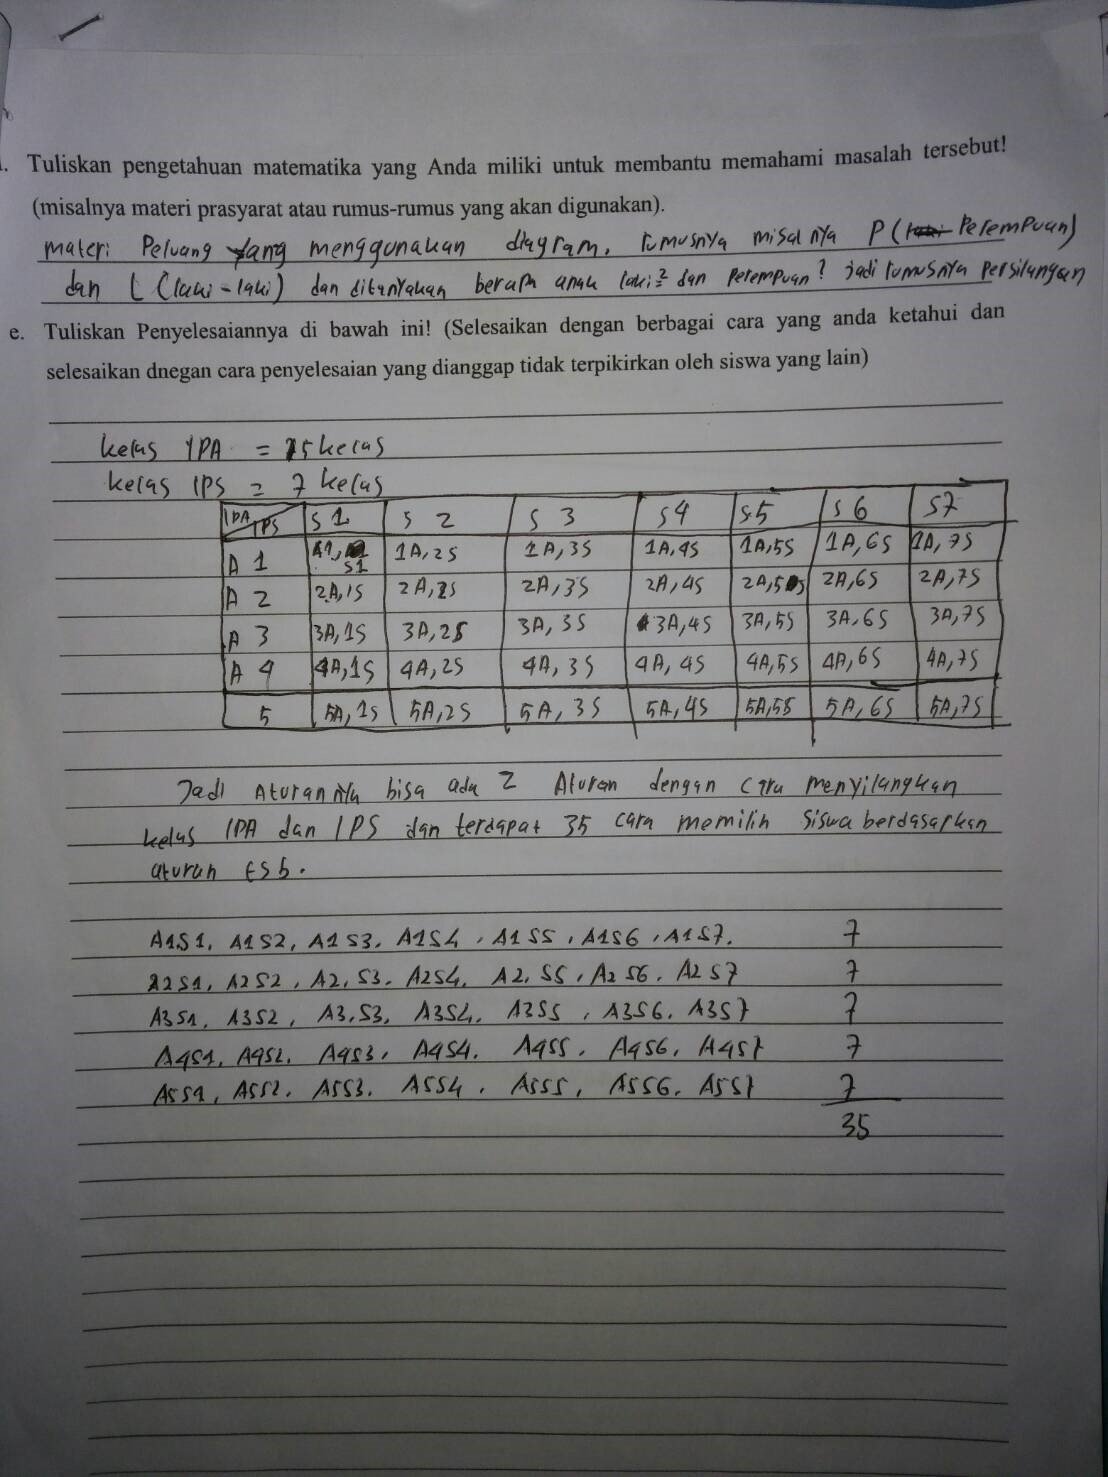 . Tuliskan pengetahuan matematika yang Anda miliki untuk membantu memahami masalah tersebut!
(misalnya materi prasyarat atau rumus-rumus yang akan digunakan).
materi Peluang yang menggunakan diagram, rumusnya misalnya P (Perempuan)
dan L (laki-laki) dan ditanyakan berapa anak laki² dan Perempuan? jadi rumusnya persilangan
e. Tuliskan Penyelesaiannya di bawah ini! (Selesaikan dengan berbagai cara yang anda ketahui dan
selesaikan dnegan cara penyelesaian yang dianggap tidak terpikirkan oleh siswa yang lain)
kelas IPA = 5 kelas
kelas IPS = 7 kelas
IPA IPS S 1 S 2 S 3 S4 S5 S 6 S7
A 1 A1, S1 1A,2S 1A,3S 1A,4S 1A,5S 1A,6S 1A,7S
A 2 2A,1S 2A,2S 2A,3S 2A,4S 2A,5S 2A,6S 2A,7S
A 3 3A,1S 3A,2S 3A,3S 3A,4S 3A,5S 3A,6S 3A,7S
A 4 4A,1S 4A,2S 4A,3S 4A,4S 4A,5S 4A,6S 4A,7S
5 5A,1S 5A,2S 5A,3S 5A,4S 5A,5S 5A,6S 5A,7S
Jadi Aturannya bisa ada 2 Aturan dengan cara menyilangkan
kelas IPA dan IPS dan terdapat 35 cara memilih siswa berdasarkan
aturan tsb.
A1S1, A1S2, A1S3, A1S4, A1S5, A1S6, A1S7. 7
A2S1, A2S2, A2,S3. A2S4, A2,S5, A2S6. A2S7 7
A3S1, A3S2, A3,S3, A3S4, A3S5, A3S6. A3S7 7
A4S1, A4S2, A4S3, A4S4. A4S5, A4S6, A4S7 7
A5S1, A5S2, A5S3. A5S4, A5S5, A5S6, A5S7 7
35